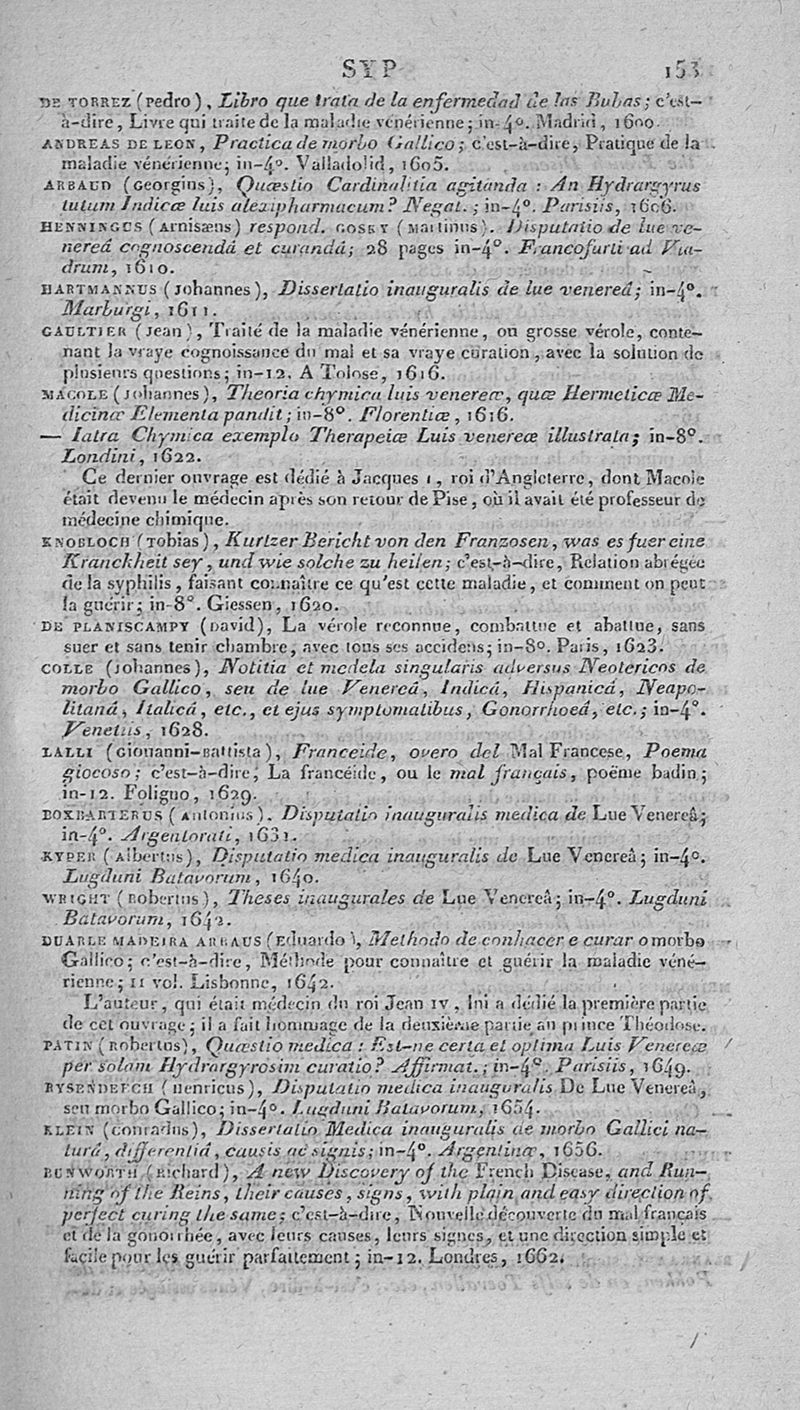 SYP 153
DE TORREZ (Pedro), Libro que trata de la enfermedad de las Bubas; c'est-
à-dire, Livre qui traite de la maladie vénérienne; in-4°. Madrid, 1600.
ANDREAS DE LEON, Practica de morbo Gallico; c'est-à-dire, Pratique de la
maladie vénérienne; in-4°. Valladolid, 1605.
ARBAUD (Georgius), Quæstio Cardinalitia agitanda : An Hydrargyrus
tutum Indicæ luis alexipharmacum? Negat. ; in-4°. Parisiis, 1606.
HENNINGUS (Arnisæus) respond. GOSKY (Martinus). Disputatio de lue ve-
nereâ cognoscendâ et curandâ; 28 pages in-4°. Francofurti ad Via-
drum, 1610.
HARTMANNUS (Johannes), Dissertatio inauguralis de lue venereâ; in-4°.
Marburgi, 1611.
GAULTIER (Jean), Traité de la maladie vénérienne, ou grosse vérole, conte-
nant la vraye cognoissance du mal et sa vraye curation, avec la solution de
plusieurs questions; in-12. A Tolose, 1616.
MACOLE (Johannes), Theoria chymica luis venereæ, quæ Hermeticæ Me-
dicinæ Elementa pandit; in-8°. Florentiæ, 1616.
— Iatra Chymica exemplo Therapeiæ Luis venereæ illustrata; in-8°.
Londini, 1622.
Ce dernier ouvrage est dédié à Jacques I, roi d'Angleterre, dont Macole
était devenu le médecin après son retour de Pise, où il avait été professeur de
médecine chimique.
KNOBLOCH (Tobias), Kurtzer Bericht von den Franzosen, was es fuer eine
Kranckheit sey, und wie solche zu heilen; c'est-à-dire, Relation abrégée
de la syphilis, faisant connaître ce qu'est cette maladie, et comment on peut
la guérir; in-8°. Giessen, 1620.
DE PLANISCAMPY (David), La vérole reconnue, combattue et abattue, sans
suer et sans tenir chambre, avec tous ses accidens; in-8°. Paris, 1623.
COLLE (Johannes), Notitia et medela singularis adversus Neotericos de
morbo Gallico, seu de lue Venereâ, Indicâ, Hispanicâ, Neapo-
litanâ, Italicâ, etc., et ejus symptomatibus, Gonorrhoeâ, etc.; in-4°.
Venetiis, 1628.
LALLI (Giouanni-Battista), Franceide, overo del Mal Francese, Poema
giocoso; c'est-à-dire, La francéide, ou le mal français, poëme badin;
in-12. Foligno, 1629.
BOXBARTERUS (Antonius). Disputatio inauguralis medica de Lue Venereâ;
in-4°. Argentorati, 1631.
KYPER (Albertus), Disputatio medica inauguralis de Lue Venereâ; in-4°.
Lugduni Batavorum, 1640.
WRIGHT (Robertus), Theses inaugurales de Lue Venereâ; in-4°. Lugduni
Batavorum, 1642.
DUARLE MADEIRA ARRAUS (Eduardo), Methodo de conhacer e curar o morbo
Gallico; c'est-à-dire, Méthode pour connaître et guérir la maladie véné-
rienne; II vol. Lisbonne, 1642.
L'auteur, qui était médecin du roi Jean IV, lui a dédié la première partie
de cet ouvrage; il a fait hommage de la deuxième partie au prince Théodose.
PATIN (Robertus), Quæstio medica : Est-ne certa et optima Luis Venereæ
per solam Hydrargyrosim curatio? Affirmat. ; in-4°. Parisiis, 1649.
RYSENDERCH (Henricus), Disputatio medica inauguralis De Lue Venereâ,
seu morbo Gallico; in-4°. Lugduni Batavorum, 1654.
KLEIN (Conradus), Dissertatio Medica inauguralis de morbo Gallici na-
turâ, differentiâ, causis ac signis; in-4°. Argentinæ, 1656.
BUNWORTH (Richard), A new Discovery of the French Disease, and Run-
ning of the Reins, their causes, signs, with plain and easy direction of
perfect curing the same; c'est-à-dire, Nouvelle découverte du mal français
et de la gonorrhée, avec leurs causes, leurs signes, et une direction simple et
facile pour les guérir parfaitement; in-12. Londres, 1662.